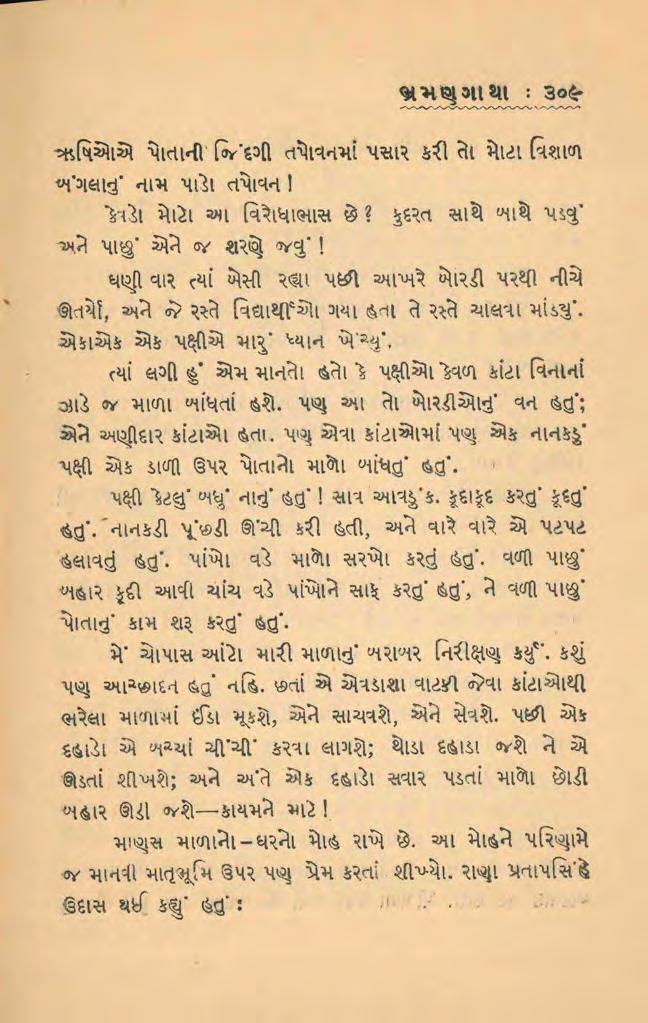 ભ્રમણગાથા : ૩૦૯
ઋષિઓએ પોતાની જિંદગી તપોવનમાં પસાર કરી તો મોટા વિશાળ
બંગલાનું નામ પાડો તપોવન !
કેવડો મોટો આ વિરોધાભાસ છે ? કુદરત સાથે બાથે પડવું
અને પાછું એને જ શરણે જવું !
ઘણી વાર ત્યાં બેસી રહ્યા પછી આખરે બોરડી પરથી નીચે
ઊતર્યો, અને જે રસ્તે વિદ્યાર્થીઓ ગયા હતા તે રસ્તે ચાલવા માંડયું.
એકાએક એક પક્ષીએ મારું ધ્યાન ખેંચ્યું.
ત્યાં લગી હું એમ માનતો હતો કે પક્ષીઓ કેવળ કાંટા વિનાનાં
ઝાડે જ માળા બાંધતાં હશે. પણ આ તો બોરડીઓનું વન હતું;
એને અણીદાર કાંટાઓ હતા. પણ એવા કાંટાઓમાં પણ એક નાનકડું
પક્ષી એક ડાળી ઉપર પોતાનો માળો બાંધતું હતું.
પક્ષી કેટલું બધું નાનું હતું ! સાવ આવડુંક. કૂદાકૂદ કરતું કૂદતું
હતું. નાનકડી પૂંછડી ઊંચી કરી હતી, અને વારે વારે એ પટપટ
હલાવતું હતું. પાંખો વડે માળો સરખો કરતું હતું. વળી પાછું
બહાર કૂદી આવી ચાંચ વડે પાંખોને સાફ કરતું હતું, ને વળી પાછું
પોતાનું કામ શરૂ કરતું હતું.
મેં ચોપાસ આંટો મારી માળાનું બરાબર નિરીક્ષણ કર્યું. કશું
પણ આચ્છાદન હતું નહિ. છતાં એ એવડાશા વાટકી જેવા કાંટાઓથી
ભરેલા માળામાં ઈંડા મૂકશે, એને સાચવશે, એને સેવશે. પછી એક
દહાડો એ બચ્ચાં ચીંચીં કરવા લાગશે; થોડા દહાડા જશે ને એ
ઊડતાં શીખશે; અને અંતે એક દહાડો સવાર પડતાં માળો છોડી
બહાર ઊડી જશે—કાયમને માટે !
માણસ માળાનો–ઘરનો મોહ રાખે છે. આ મોહને પરિણામે
જ માનવી માતૃભૂમિ ઉપર પણ પ્રેમ કરતાં શીખ્યો. રાણા પ્રતાપસિંહે
ઉદાસ થઈ કહ્યું હતું :